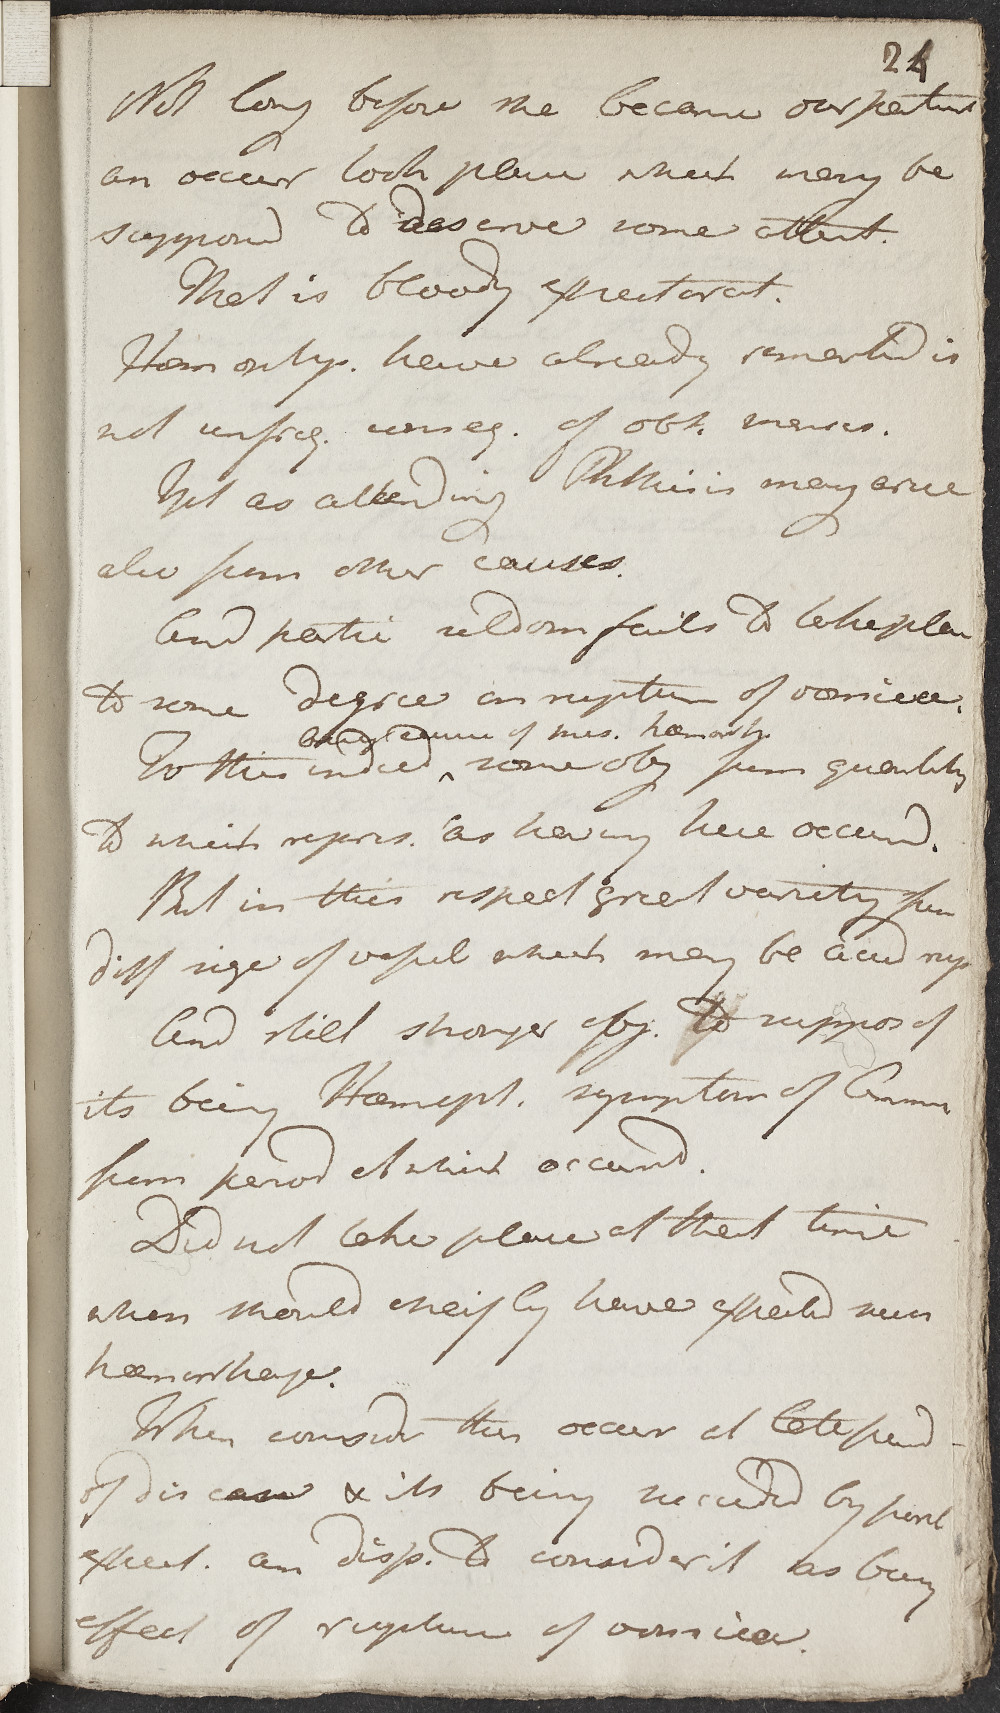 24
Not long before she became our patient
an occur took place which may be
supposed to deserve some attent.
That is bloody expectorat.
Hæmoptys. have already remarked is
not unfreq. conseq. of obst. menses.
Yet as attending Phthisis may arise
also from other causes.
And partic seldom fails to take place
to some degree on rupture of vomicæ.
being cause of hæmorrh.
To this indeed ^ some obj from quantity
to which repres. as having here occurred.
But in this respect great variety from
diff size of vessel which may be
And still stronger obj. to suppos of
its being Hæmopt. symptom of
from period at which occurred.
Did not take place at that time
when should chiefly have expected such
hæmorrhage.
When consider this occur at late period
of disease & its being succeeded by purul
expect. am disp. to consider it as being
effect of rupture of vomica.